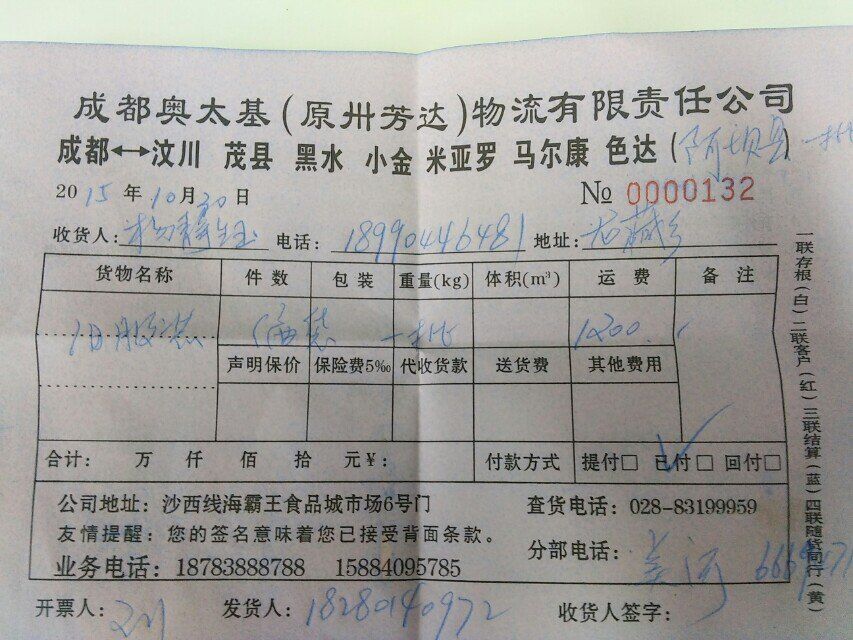 成都奥太基(原卅芳达)物流有限责任公司
成都↔汶川 茂县 黑水 小金 米亚罗 马尔康 色达(阿坝县)一批
2015年10月30日 № 0000132
收货人: 电话: 18990446481 地址:
货物名称 件数 包装 重量(kg) 体积(m³) 运费 备注
旧服装 编袋 一批 1200.
声明保价 保险费5‰ 代收货款 送货费 其他费用
合计: 万 仟 佰 拾 元¥: 付款方式 提付□ 已付□ 回付□
公司地址: 沙西线海霸王食品城市场6号门 查货电话: 028-83199959
友情提醒: 您的签名意味着您已接受背面条款。
业务电话: 18783888788 15884095785 分部电话:
开票人: 发货人: 18280140972 收货人签字:
一联存根(白)二联客户(红)三联结算(蓝)四联随货同行(黄)